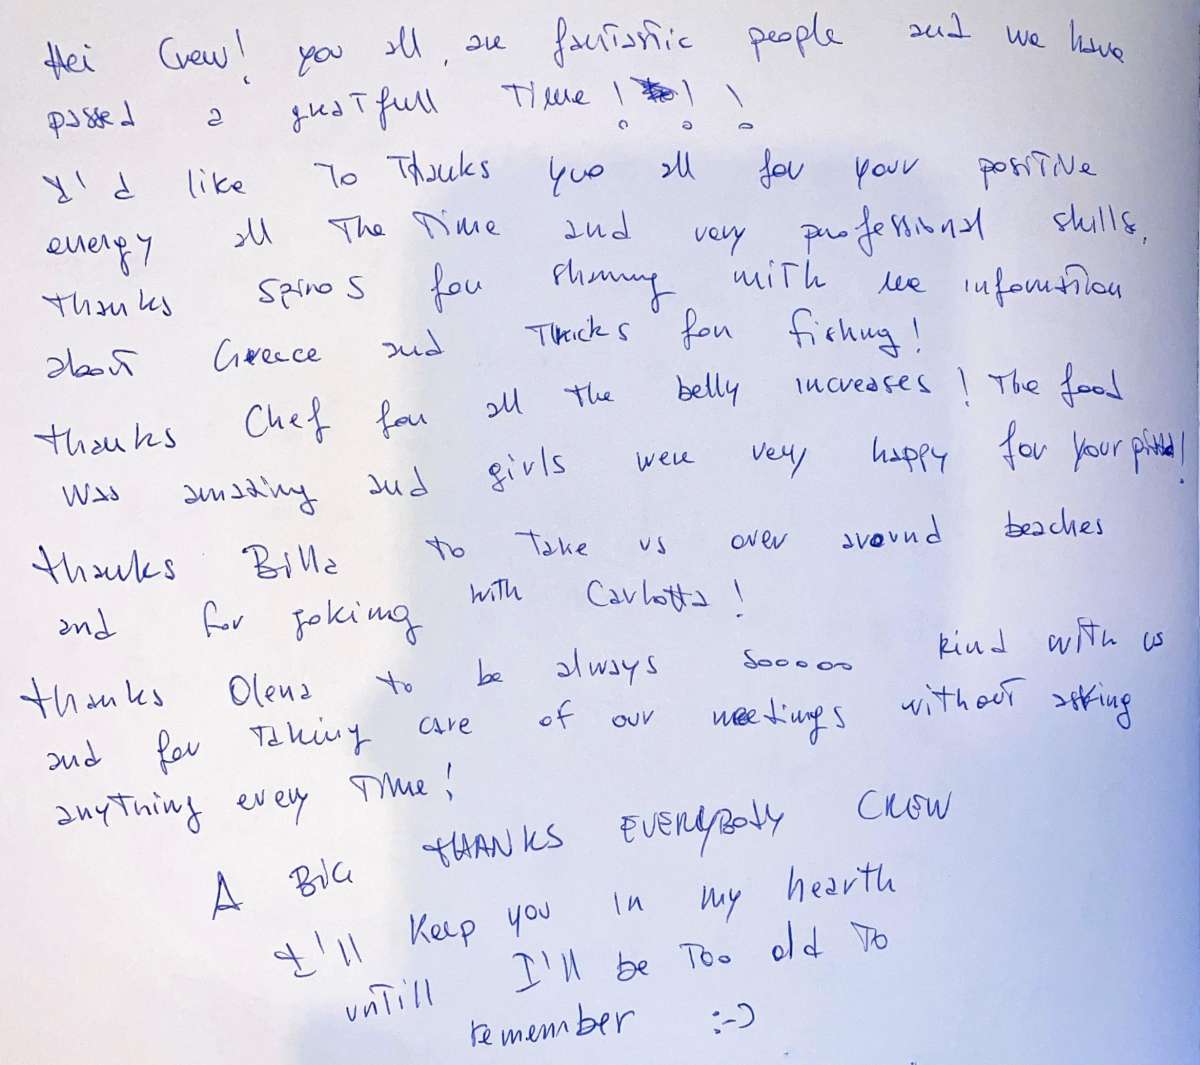 Hei Crew! you all are fantastic people and we have
passed a greatfull Time ! ! !
I'd like To Thanks you all for your positive
energy all The Time and very professional skills.
thanks Spiros for sharing with me information
about Greece and Tricks for fishing!
thanks Chef for all The belly increases! The food
was amazing and girls were very happy for your
thanks Billa to Take us over around beaches
and for joking with Carlotta!
thanks Olena to be always sooooo kind with us
and for Taking care of our meetings without asking
anything every Time!
A BIG THANKS EVERYBODY CREW
I'll Keep you in my hearth
unTill I'll be Too old To
remember :-)